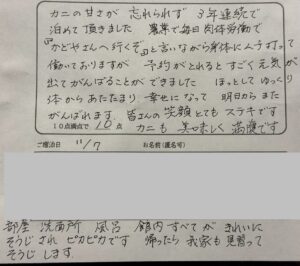 カニの甘さが 忘れられず 3年連続で
泊めて頂きました 農業で毎日肉体労働で
「かどやさんへ行くぞ」と言いながら身体にムチ打って
働いておりますが 予約がとれるとすごく元気が
出てがんばることができました ほっとしてゆっくり
体からあたたまり 幸せになって 明日からまた
がんばれます 皆さんの笑顔とても ステキです
10点満点で 10 点 カニも 美味しく 満喫です
ご宿泊日 11/7 お名前(匿名可)
部屋 洗面所 風呂 館内 すべてが きれいに
そうじされ ピカピカです 帰ったら 我家も 見習って
そうじ します